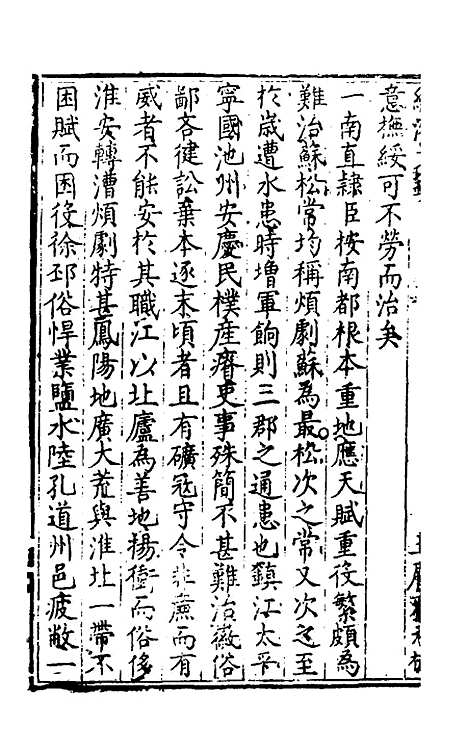 意撫綏可不勞而治矣
一南直隸臣按南都根本重地應天賦重役繁頗為
難治蘇松常均稱煩劇蘇為最松次之常又次之至
於歲遭水患時增軍餉則三郡之通患也鎮江太平
寧國池州安慶民樸產瘠吏事殊簡不甚難治徽俗
鄙吝健訟棄本逐末頃者且有礦寇守令非廉而有
威者不能安於其職江以北廬為善地揚衝而俗侈
淮安轉漕煩劇特甚鳳陽地廣大荒與淮北一帶不
困賦而困役徐邳俗悍業鹽水陸孔道州邑疲敝一